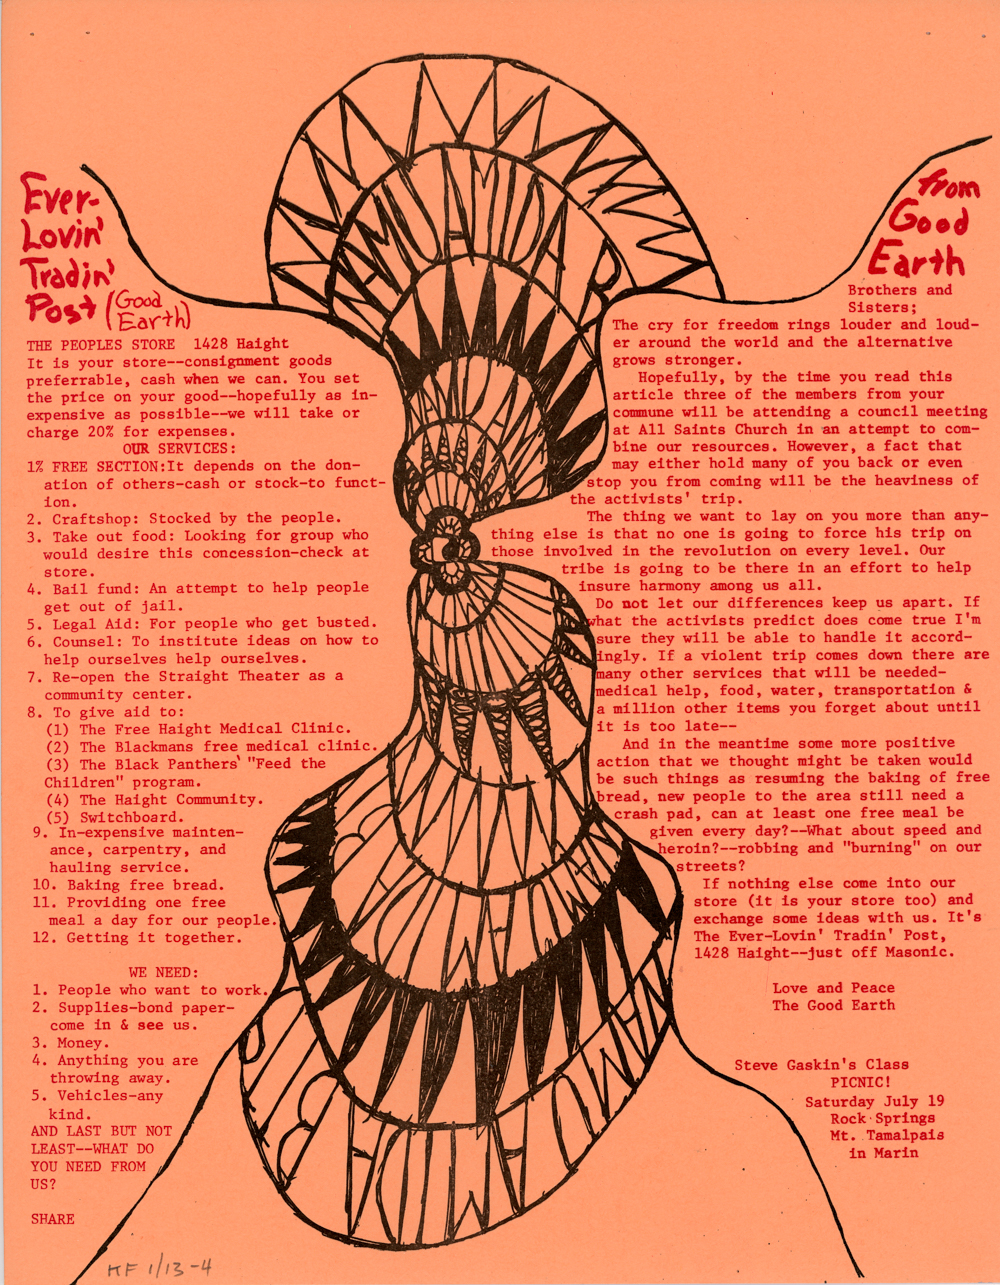 Ever-
Lovin'
Tradin'
Post (Good
Earth)
THE PEOPLES STORE 1428 Haight
It is your store--consignment goods
preferrable, cash when we can. You set
the price on your good--hopefully as in-
expensive as possible--we will take or
charge 20% for expenses.
OUR SERVICES:
1% FREE SECTION:It depends on the don-
ation of others-cash or stock-to funct-
ion.
2. Craftshop: Stocked by the people.
3. Take out food: Looking for group who
would desire this concession-check at
store.
4. Bail fund: An attempt to help people
get out of jail.
5. Legal Aid: For people who get busted.
6. Counsel: To institute ideas on how to
help ourselves help ourselves.
7. Re-open the Straight Theater as a
community center.
8. To give aid to:
(1) The Free Haight Medical Clinic.
(2) The Blackmans free medical clinic.
(3) The Black Panthers' "Feed the
Children" program.
(4) The Haight Community.
(5) Switchboard.
9. In-expensive mainten-
ance, carpentry, and
hauling service.
10. Baking free bread.
11. Providing one free
meal a day for our people.
12. Getting it together.
WE NEED:
1. People who want to work.
2. Supplies-bond paper-
come in & see us.
3. Money.
4. Anything you are
throwing away.
5. Vehicles-any
kind.
AND LAST BUT NOT
LEAST--WHAT DO
YOU NEED FROM
US?
SHARE
KF 1/13-4
from
Good
Earth
Brothers and
Sisters;
The cry for freedom rings louder and loud-
er around the world and the alternative
grows stronger.
Hopefully, by the time you read this
article three of the members from your
commune will be attending a council meeting
at All Saints Church in an attempt to com-
bine our resources. However, a fact that
may either hold many of you back or even
stop you from coming will be the heaviness of
the activists' trip.
The thing we want to lay on you more than any-
thing else is that no one is going to force his trip on
those involved in the revolution on every level. Our
tribe is going to be there in an effort to help
insure harmony among us all.
Do not let our differences keep us apart. If
what the activists predict does come true I'm
sure they will be able to handle it accord-
ingly. If a violent trip comes down there are
many other services that will be needed-
medical help, food, water, transportation &
a million other items you forget about until
it is too late--
And in the meantime some more positive
action that we thought might be taken would
be such things as resuming the baking of free
bread, new people to the area still need a
crash pad, can at least one free meal be
given every day?--What about speed and
heroin?--robbing and "burning" on our
streets?
If nothing else come into our
store (it is your store too) and
exchange some ideas with us. It's
The Ever-Lovin' Tradin' Post,
1428 Haight--just off Masonic.
Love and Peace
The Good Earth
Steve Gaskin's Class
PICNIC!
Saturday July 19
Rock Springs
Mt. Tamalpais
in Marin